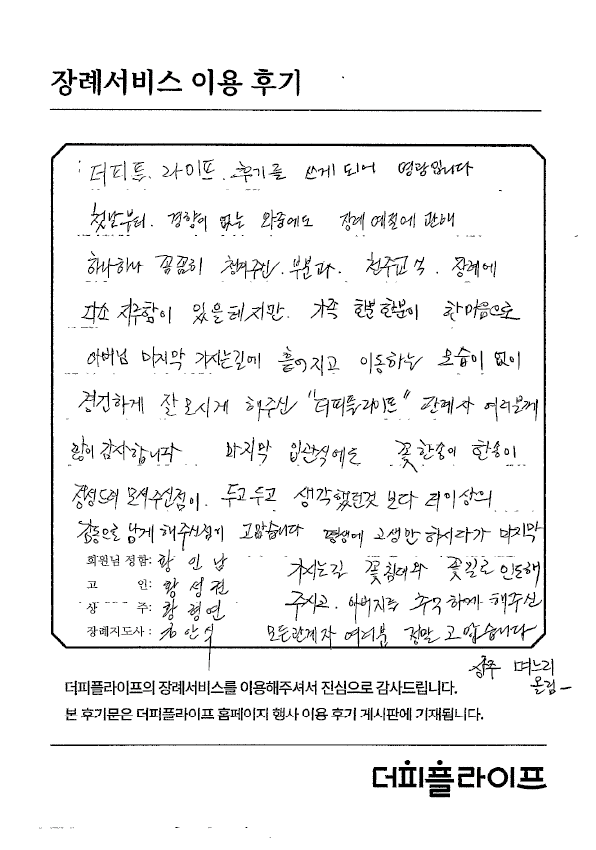 장례서비스 이용 후기
더피플 라이프 후기를 쓰게 되어 영광입니다
첫날부터. 경황이 없는 와중에도 장례 예절에 관해
하나하나 꼼꼼히 챙겨주신. 부분과. 천주교식. 장례에
다소 지루함이 있을테지만. 가족 한분 한분이 한마음으로
아버님 마지막 가시는길에 흩어지고 이동하는 모습이 없이
경건하게 잘 모시게 해주신 "더피플라이프" 관계자 여러분께
많이 감사합니다 마지막 입관식에는 꽃 한송이 한송이
정성드려 모셔주신점이. 두고두고 생각했던것 보다 더이상의
감동으로 남게 해주셔서 고맙습니다 평생에 고생만 하시다가 마지막
회원님 성함: 황인남 가시는길 꽃침대와 꽃길로 인도해
고 인: 황성
상 주: 황형연 주시고. 아버지를 추억하게 해주신
장례지도사: 모든관계자 여러분 정말 고맙습니다
상주 며느리
올림-
더피플라이프의 장례서비스를 이용해주셔서 진심으로 감사드립니다.
본 후기문은 더피플라이프 홈페이지 행사 이용 후기 게시판에 기재됩니다.
더피플라이프